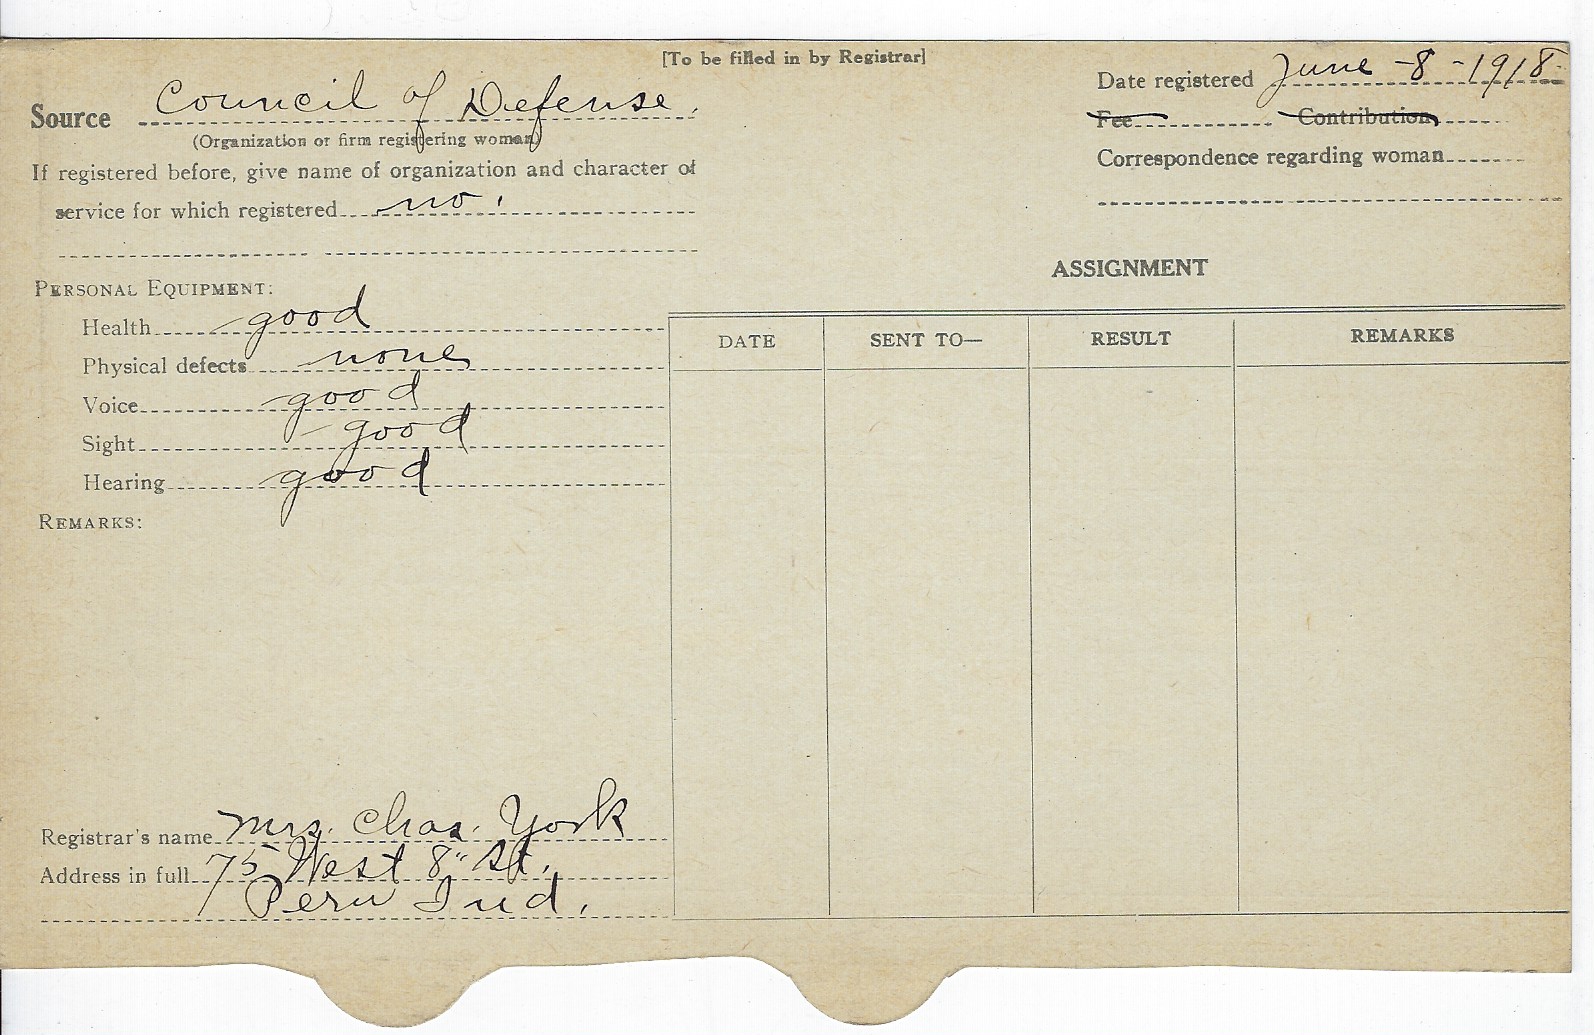 [To be filled in by Registrar]
Source Council of Defense.
(Organization or firm registering woman)
If registered before, give name of organization and character of
service for which registered no.
Date registered June -8 -1918-
Fee Contribution
Correspondence regarding woman
PERSONAL EQUIPMENT:
Health good
Physical defects none
Voice good
Sight good
Hearing good
REMARKS:
ASSIGNMENT
DATE SENT TO— RESULT REMARKS
Registrar's name Mrs. Chas. York
Address in full 75 West 8" St.
Peru Ind.